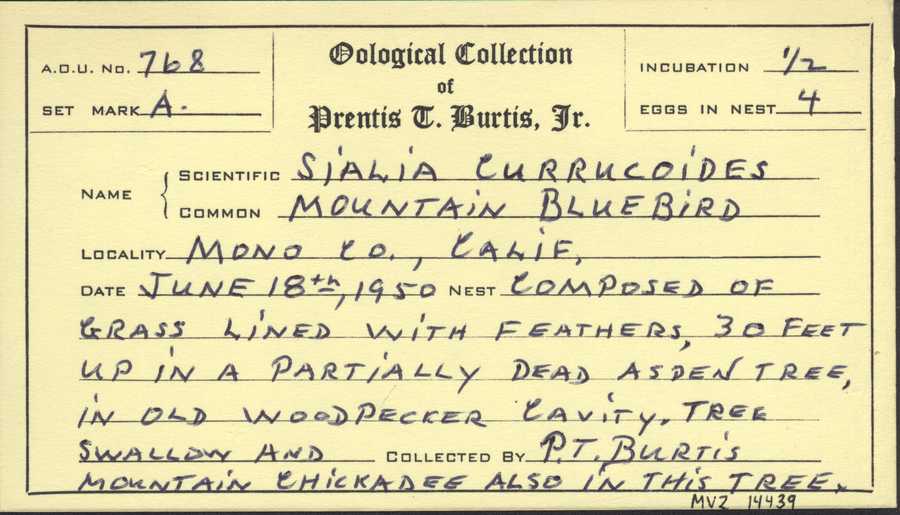 A.O.U. No. 768
Oological Collection
of
Prentis T. Burtis, Jr.
INCUBATION 1/2
SET MARK A.
EGGS IN NEST 4
NAME
SCIENTIFIC SIALIA CURRUCOIDES
COMMON MOUNTAIN BLUEBIRD
LOCALITY MONO CO., CALIF.
DATE JUNE 18th, 1950 NEST COMPOSED OF
GRASS LINED WITH FEATHERS, 30 FEET
UP IN A PARTIALLY DEAD ASPEN TREE,
IN OLD WOODPECKER CAVITY. TREE
SWALLOW AND COLLECTED BY P.T. BURTIS
MOUNTAIN CHICKADEE ALSO IN THIS TREE.
MVZ 14439